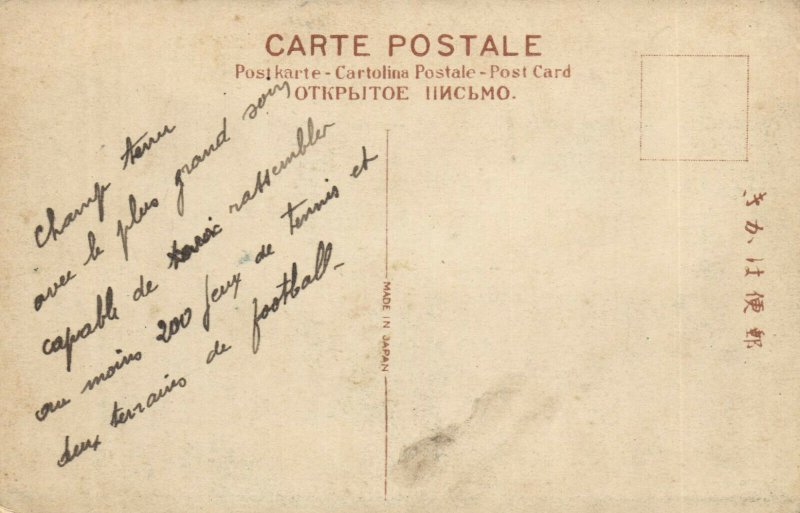 CARTE POSTALE
Postkarte - Cartolina Postale - Post Card
ОТКРЫТОЕ ПИСЬМО.
champ tenu
avec le plus grand soin
capable de rassembler
au moins 200 jeux de tennis et
deux terrains de football -
MADE IN JAPAN
きかは便郵